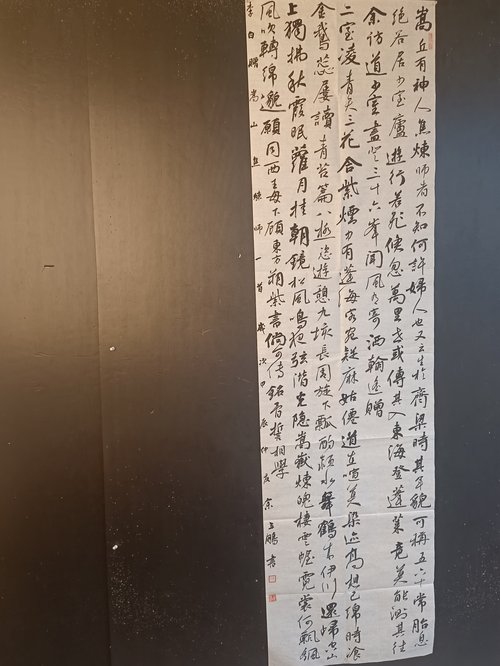 嵩丘有神人焦煉師者不知何許婦人也又云生於齊梁時其年貌可稱五六十常胎息
絕谷居少室廬遊行若飛倏忽萬里世或傳其入東海登蓬萊竟莫能測其往
余訪道少室盡登三十六峯聞風有寄洒翰遙贈
二室凌青天三花含紫煙中有蓬海客宛疑麻姑僊道在喧莫染迹高想已綿時飡
金鵝蕊屢讀青苔篇八極恣遊憩九垓長周旋下瓢酌潁水舞鶴來伊川還歸空山
上獨拂秋霞眠蘿月挂朝鏡松風鳴夜弦潛光隐嵩嶽煉魄棲雲幄霓裳何飄颻
風吹轉綿邈願同西王母下顧東方朔紫書倘可傳銘骨誓相學
李白贈嵩山焦煉師一首歲次甲辰仲夏鵬書